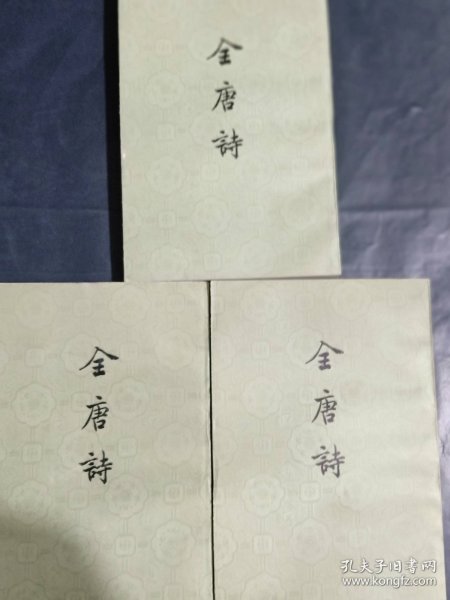 全唐詩
全唐詩
全唐詩
孔夫子旧书网
www.kongfz.com